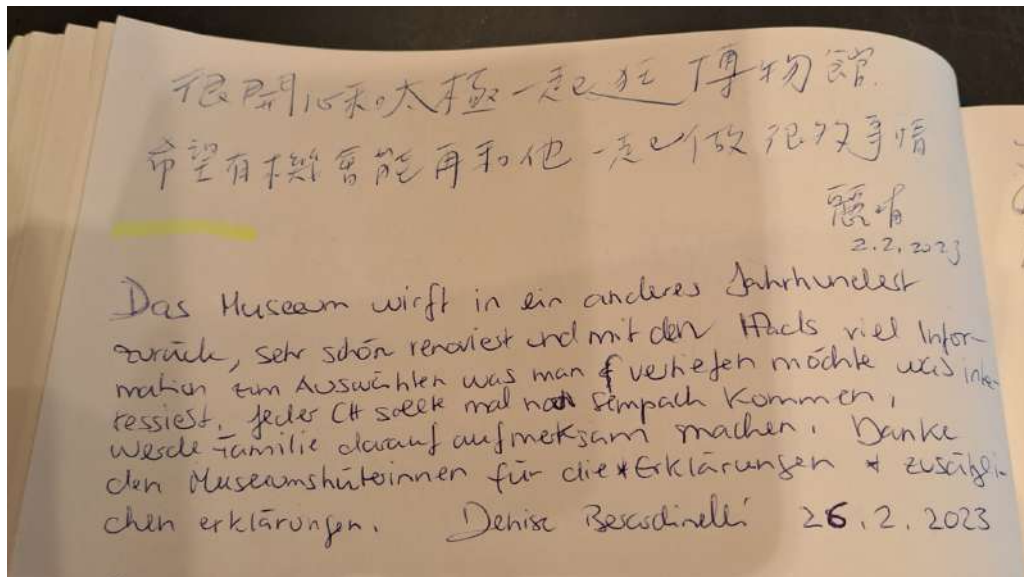 很開心和太極一起逛博物館.
希望有機會能再和他一起做很多事情
麗
2.2.2023
Das Museum wirft in ein anderes Jahrhundert
zurück, sehr schön renoviert und mit den IPads viel Infor-
mation zum Auswählen was man vertiefen möchte was inte-
ressiert. Jeder CH sollte mal nach Sempach kommen,
werde Familie darauf aufmerksam machen. Danke
den Museumshüterinnen für die *Erklärungen * zusätzli-
chen erklärungen. Denise 26.2.2023